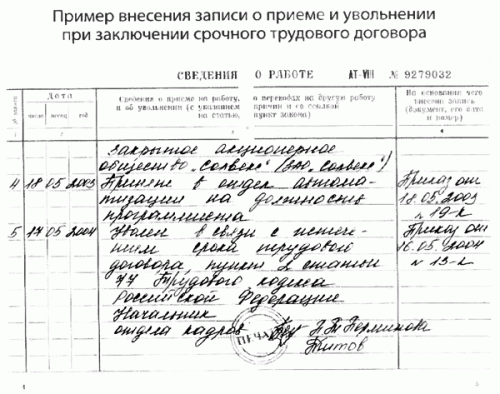 Пример внесения записи о приеме и увольнении
при заключении срочного трудового договора
СВЕДЕНИЯ О РАБОТЕ АТ-VIII № 9279032
Дата
Сведения о приеме на работу, о переводах на другую работу
и об увольнении (с указанием причин и со ссылкой
на статью, пункт закона)
На основании чего
внесена запись
(документ, его дата
и номер)
число месяц год
2 4
Закрытое акционерное
общество „Солвекс" (ЗАО „Солвекс")
4 18 05 2003 Принят в отдел автома- Приказ от
тизации на должность 18.05.2003
программиста n 19-к
5 17 05 2004 Уволен в связи с истече- Приказ от
нием срока трудового 16.05.2004
договора, пункт 2 статьи n 13-к
77 Трудового кодекса
Российской Федерации
Начальник
отдела кадров Н.Т. Перминова
ПЕЧАТЬ Титов